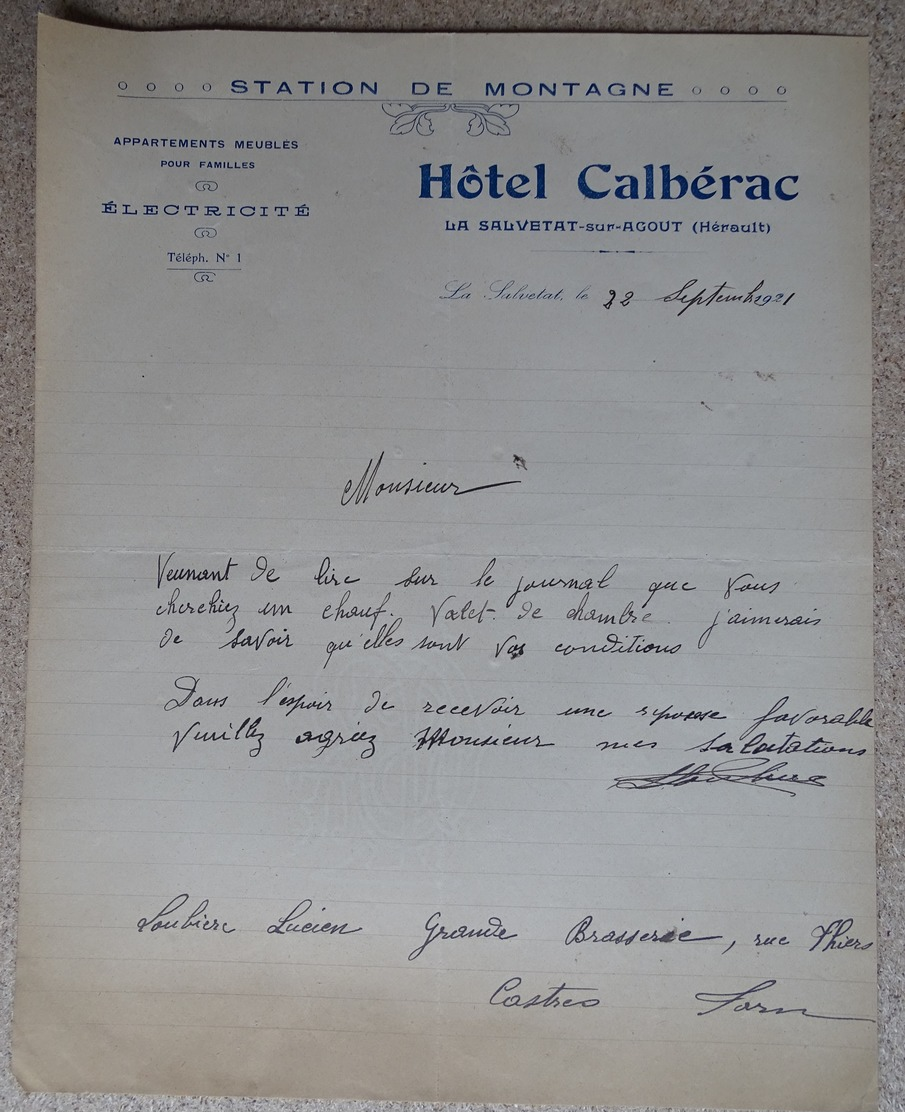 o o o o STATION DE MONTAGNE o o o o
APPARTEMENTS MEUBLÉS
POUR FAMILLES
ÉLECTRICITÉ
Téléph. N° 1
Hôtel Calbérac
LA SALVETAT-sur-AGOUT (Hérault)
La Salvetat, le 22 Septemb 1921
Monsieur
Veunant de lire sur le journal que vous
cherchiez un chauf. Valet. de chambre. j'aimerais
de savoir qu'elles sont vos conditions
Dans l'espoir de recevoir une reponse favorable
Veuillez agriez Monsieur mes salutations
Soubiere Lucien Grande Brasserie, rue Thiers
Castres Tarn